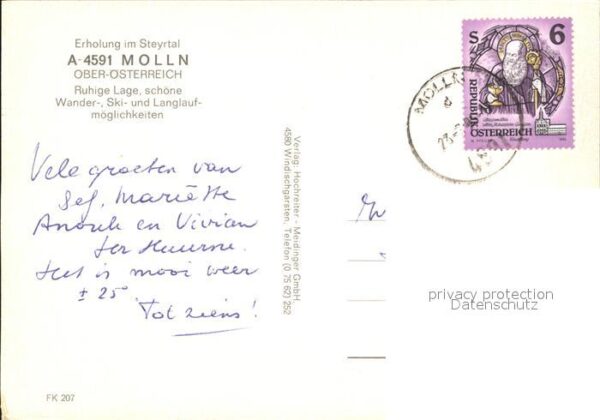 Erholung im Steyrtal
A-4591 MOLLN
OBER-ÖSTERREICH
Ruhige Lage, schöne
Wander-, Ski- und Langlauf-
möglichkeiten
Vele groeten van
Gef, Mariëtte
Anouk en Vivian
ter Huurne.
Het is mooi weer
± 25°
Tot ziens!
FK 207
Verlag: Hochreiter - Meidinger GmbH
4580 Windischgarsten, Telefon (0 75 62) 252
S 6
REPUBLIK
ÖSTERREICH
MOLLN
4591
privacy protection
Datenschutz